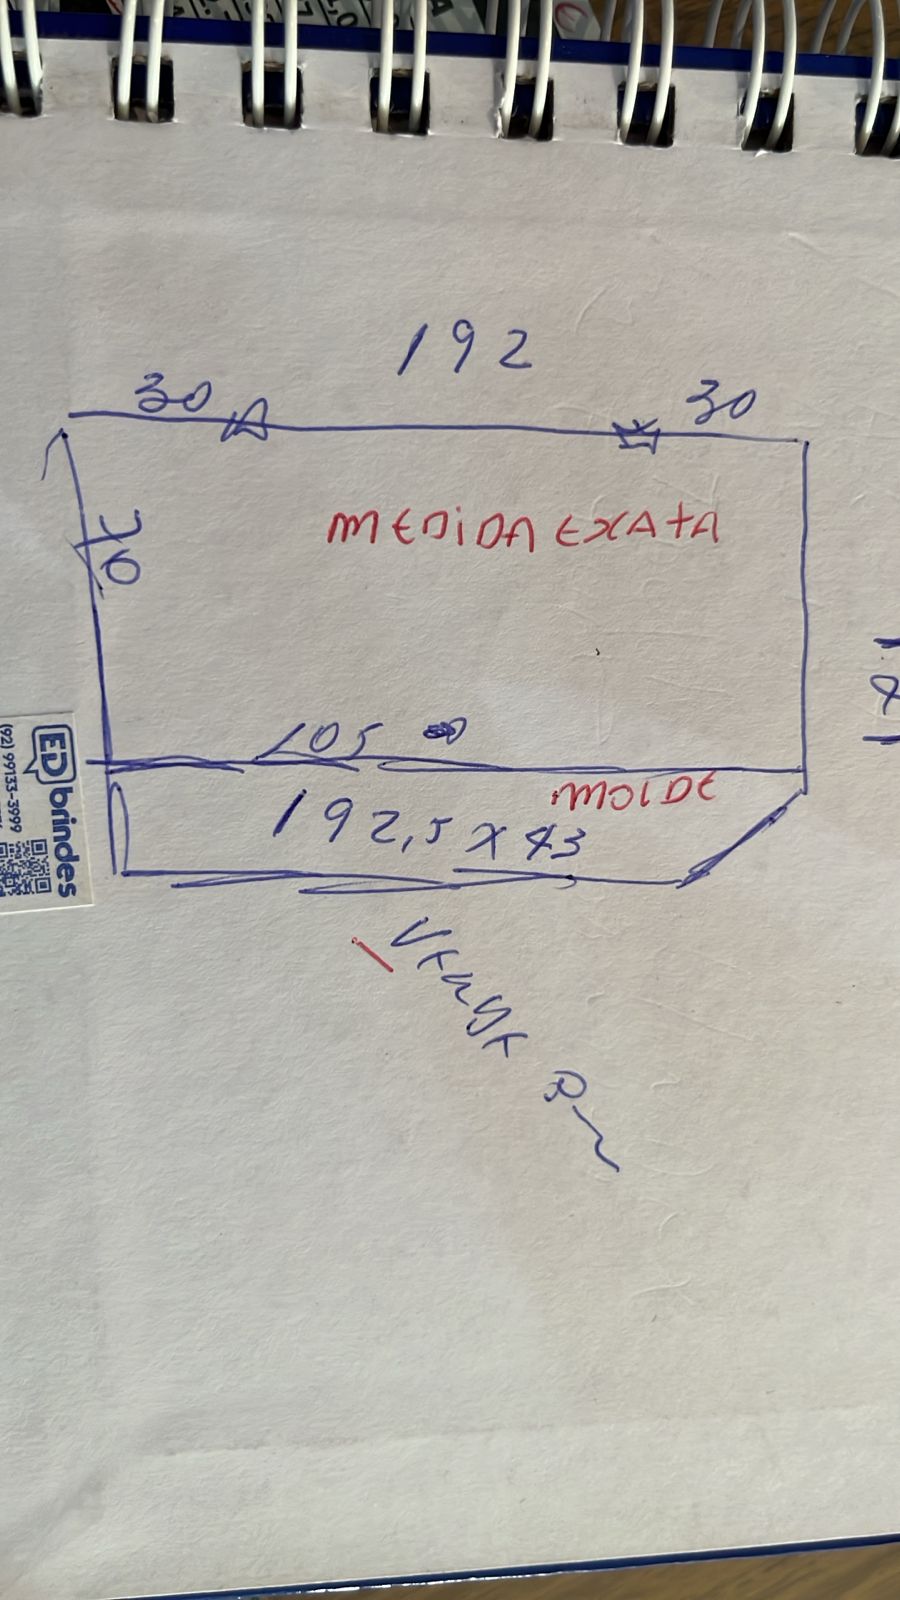 192
30
30
MEDIDA EXATA
70
105
MOLDE
192,5 x 43
ED brindes
(92) 99133-3999